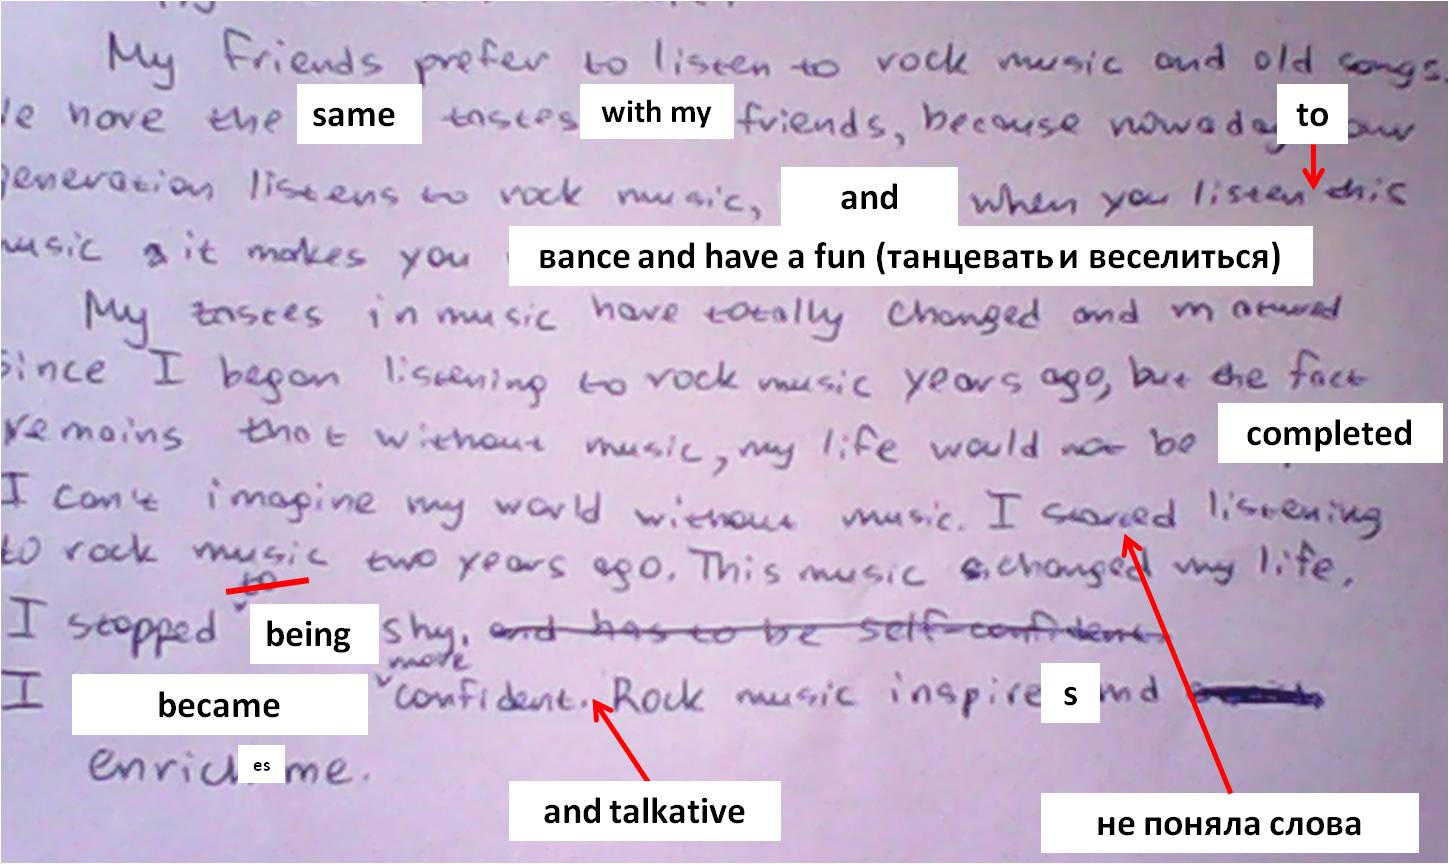 My friends prefer to listen to rock music and old songs.
have the same tastes with my friends, because nowaday our
to
generation listens to rock music, and when you listen this
music it makes you вance and have a fun (танцевать и веселиться)
My tastes in music have totally changed and matured
since I began listening to rock music years ago, but the fact
remains that without music, my life would not be completed
I can't imagine my world without music. I started listening
to rock music two years ago. This music changed my life.
to
I stopped being shy. and has to be self-confident.
more
I became confident. Rock music inspires and
enriches me.
and talkative
не поняла слова